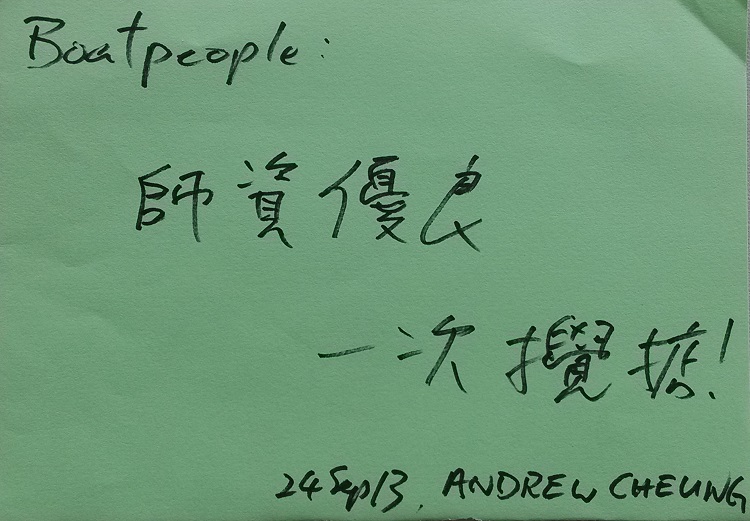 Boatpeople:
師資優良
一次攪掂!
24 Sep 13, ANDREW CHEUNG